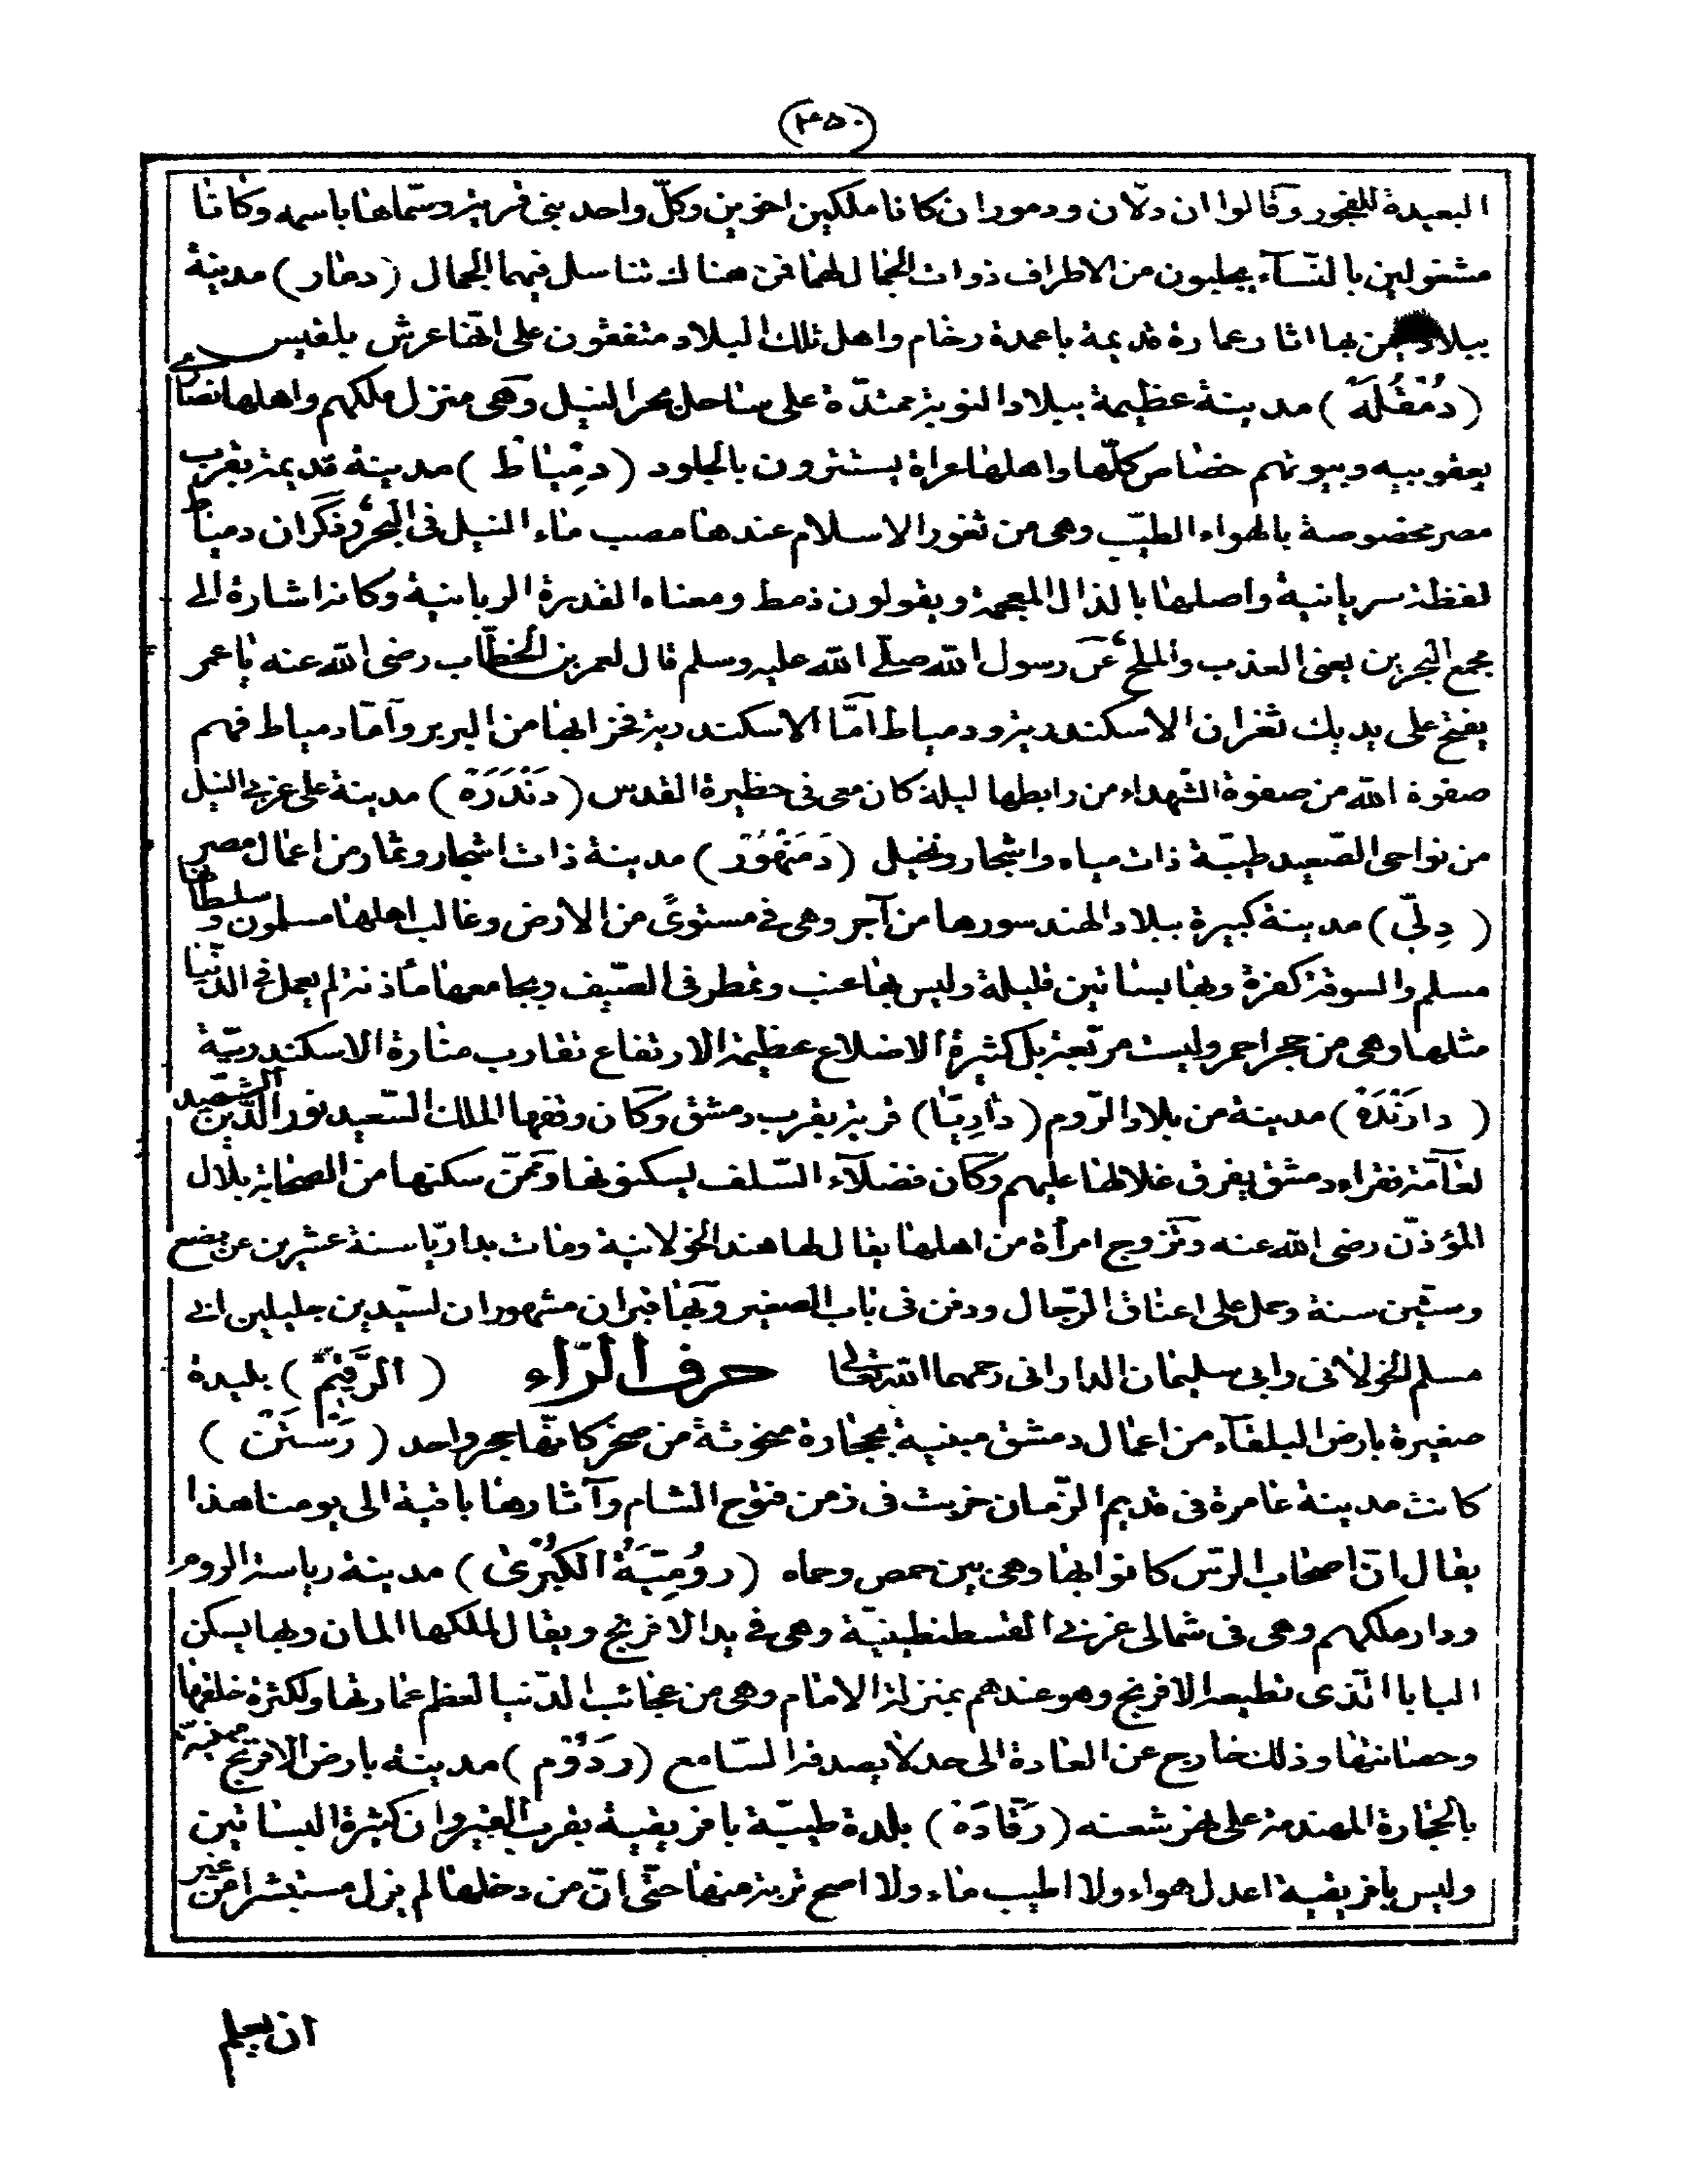 (٤٥٠)
البعيدة للفجور وقالوا ان دلّان ودموران كانا ملكين اخوين وكلّ واحد بنى قرية وسمّاها باسمه وكانا
مشغولين بالنّسآء يجلبون من الاطراف ذوات الجمال لهما فمن هناك تناسل فيهما الجمال (دمار) مدينة
ببلاد يمن بها اثار عمارة قديمة باعمدة رخام واهل تلك البلاد متفقون على انّها عرش بلقيس
(دُمْقُلَة) مدينة عظيمة ببلاد النوبة ممتدّة على ساحل بحر النيل وهى منزل ملكهم واهلها نصارى
يعقوبيه وبيوتهم خصاص كلّها واهلها عراة يستترون بالجلود (دمِيَاط) مدينة قديمة بقرب
مصر مخصوصة بالهواء الطيّب وهى من ثغور الاسلام عندها مصب ماء النيل فى البحر وذكر ان دمياط
لفظة سريانية واصلها بالذال المعجمة ويقولون ذمط ومعناه القدرة الربانية وكانه اشارة الى
مجمع البحرين يعنى العذب والملح عن رسول الله صلّى الله عليه وسلم قال لعمر بن الخطّاب رضى الله عنه يا عمر
يفتح على يديك ثغران الاسكندرية ودمياط امّا الاسكندرية فخرابها من البربر وآمّا دمياط فهم
صفوة الله من صفوة الشّهداء من رابطها ليلة كان معى فى حظيرة القدس (دَنْدَرَة) مدينة على غربى النيل
من نواحى الصّعيد طيبّة ذات مياه واشجار ونخيل (دَمَنْهُوْر) مدينة ذات اشجار وثمار من اعمال مصر
(دِلّى) مدينة كبيرة ببلاد الهند سورها من آجر وهى فى مستوىً من الارض وغالب اهلها مسلمون وسلطانها
مسلم والسوقة كفرة وبها بساتين قليلة وليس بها عنب وتمطر فى الصّيف وبجامعها مأذنة لم يعمل فى الدّنيا
مثلها وهى من حجر احمر وليست مربّعة بل كثيرة الاضلاع عظيمة الارتفاع تقارب منارة الاسكندريّة
(دارَنْدَة) مدينة من بلاد الرّوم (دَارِيّا) قرية بقرب دمشق وكان وقفها الملك السّعيد نور الدّين الشهيد
لعآمّة فقراء دمشق يفرق غلالها عليهم وكان فضلآء السّلف يسكنونها وممّن سكنها من الصحابة بلال
المؤذّن رضى الله عنه وتزوج امرأة من اهلها يقال لها هند الخولانية ومات بداريّا سنة عشرين عن بضع
وستين سنة وحمل على اعناق الرّجال ودفن فى باب الصغير وبها قبران مشهوران لسيّدين جليلين ابى
مسلم الخولانى وابى سليمان الدارانى رحمهما الله تعالى حرف الرّاء (الرَّقِيْم) بليدة
صغيرة بارض البلقآء من اعمال دمشق مبنية بحجارة منحوتة من صخر كانّها حجر واحد (رَسْتَن)
كانت مدينة عامرة فى قديم الزّمان خربت فى زمن فتوح الشام وآثارها باقية الى يومنا هذا
يقال انّ اصحاب الرّس كانوا بها وهى بين حمص وحماه (رومِيّةُ الكُبْرىٰ) مدينة رياسة الروم
ودار ملكهم وهى فى شمالى غربى القسطنطينيّة وهى فى يد الافرنج ويقال لملكها المان وبها يسكن
البابا الّذى تطيعه الافرنج وهو عندهم بمنزلة الامام وهى من عجائب الدّنيا لعظم عمارتها ولكثرة خلقها
وحصانتها وذلك خارج عن العادة الى حد لا يصدقه السّامع (ردوم) مدينة بارض الافرنج مبنيّة
بالحجارة المهندمة على نهر شعنه (رَقّادَة) بلدة طيبّة بافريقية بقرب القيروان كثيرة البساتين
وليس بافريقية اعدل هواء ولا اطيب ماء ولا اصح تربة منها حتّى انّ من دخلها لم يزل مستبشرا من غير
ان يعلم